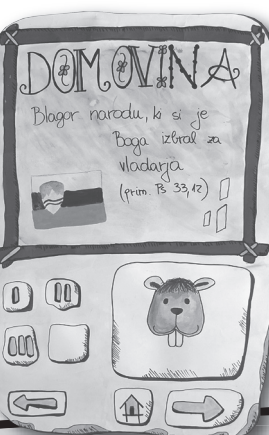 DOMOVINA
Blagor narodu, ki si je
Boga izbral za
vladarja
(prim. Ps 33,12)